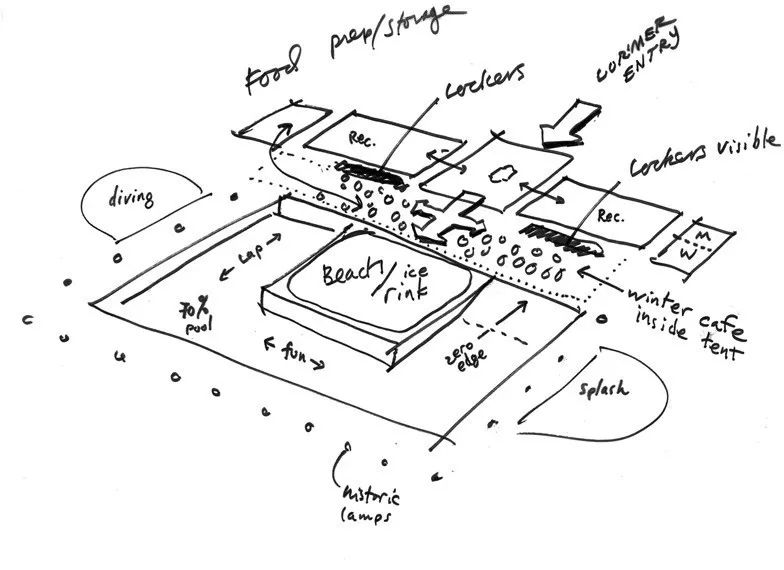 Food prep/storage
Lockers
LORIMER
ENTRY
Lockers visible
Rec.
Rec.
M
W
diving
Lap
Beach/ice
rink
70%
pool
fun
zero
edge
winter cafe
inside
tent
splash
historic
lamps